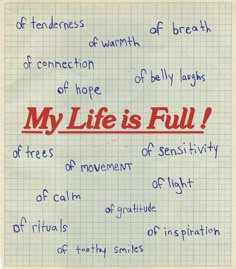 of tenderness
of breath
of warmth
of connection
of belly laughs
of hope
My Life is Full !
of trees
of sensitivity
of MOVEMENT
of light
of calm
of gratitude
of rituals
of inspiration
of toothy smiles